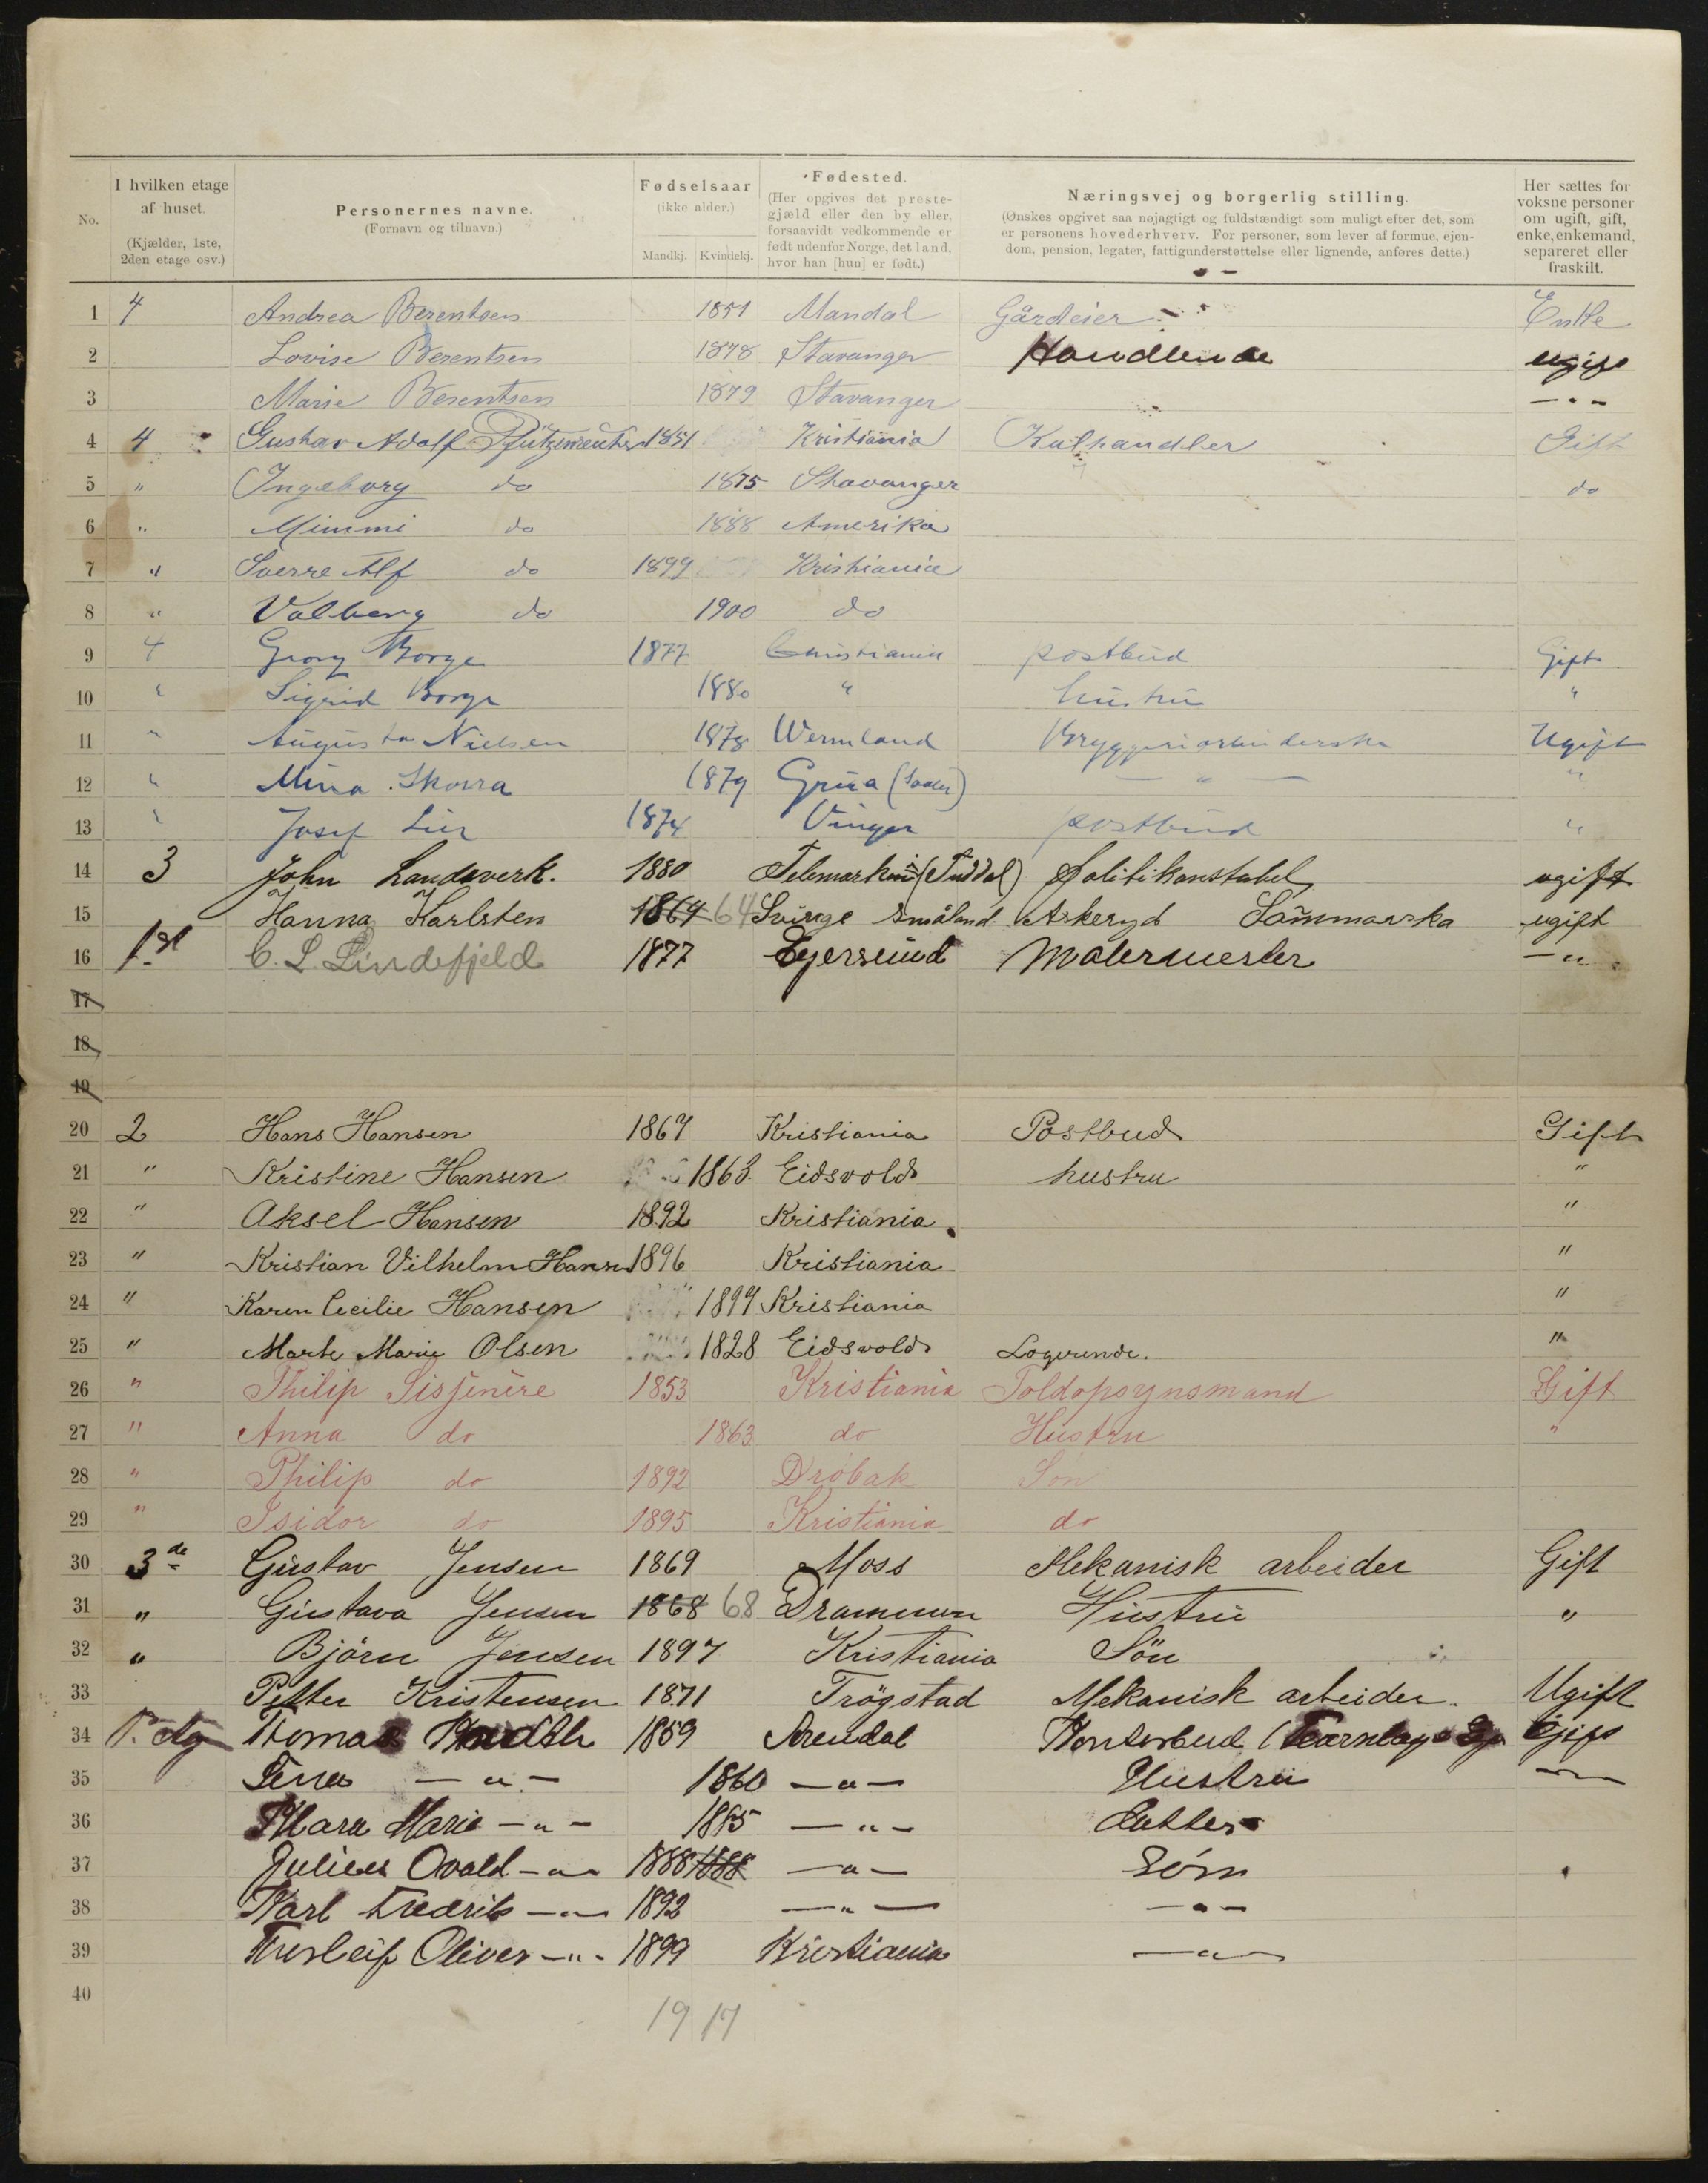 No.
I hvilken etage af huset. (Kjælder, 1ste, 2den etage osv.)
Personernes navne. (Fornavn og tilnavn.)
Fødselsaar (ikke alder.) Mandkj. Kvindekj.
Fødested. (Her opgives det prestegjæld eller den by eller, forsaavidt vedkommende er født udenfor Norge, det land, hvor han [hun] er født.)
Næringsvej og borgerlig stilling. (Ønskes opgivet saa nøjagtigt og fuldstændigt som muligt efter det, som er personens hovederhverv. For personer, som lever af formue, ejendom, pension, legater, fattigunderstøttelse eller lignende, anføres dette.)
Her sættes for voksne personer om ugift, gift, enke, enkemand, separeret eller fraskilt.
1 4 Andrea Berentsen 1851 Mandal Gårdeier Enke
2 Lovise Berentsen 1878 Stavanger Handlende ugift
3 Marie Berentsen 1879 Stavanger — " —
4 4 Gustav Adolf Pfützenreuter 1851 Kristiania Kulhandler Gift
5 " Ingeborg do 1875 Stavanger do
6 " Mimmi do 1888 Amerika
7 " Sverre Alf do 1899 Kristiania
8 " Valborg do 1900 do
9 4 Georg Borge 1877 Christiania postbud Gift
10 " Sigrid Borge 1880 " hustru "
11 " Augusta Nielsen 1878 Wermland Bryggeriarbeiderske Ugift
12 " Mina Skovra 1879 Grua ( ) — " — "
13 " Josef Lie 1874 Vinger postbud "
14 3 John Landsverk. 1880 Telemarken (Tuddal) Politikonstabel ugift
15 Hanna Karlsten 1864 64 Sverge Småland Askeryd Sømmerska ugift
16 1st C. L. Lindefjeld 1877 Egersund Malermester — " —
17
18
19
20 2 Hans Hansen 1867 Kristiania Postbud Gift
21 " Kristine Hansen 1863. Eidsvold hustru "
22 " Aksel Hansen 1892 Kristiania "
23 " Kristian Vilhelm Hansen 1896 Kristiania "
24 " Karen Cecilie Hansen 1899 Kristiania "
25 " Marte Marie Olsen 1828 Eidsvold Logerende. "
26 " Philip Sisjenère 1853 Kristiania Toldopsynsmand Gift
27 " Anna do 1863 do Hustru "
28 " Philip do 1892 Drøbak Søn
29 " Isidor do 1895 Kristiania do
30 3de Gustav Jensen 1869 Moss Mekanisk arbeider Gift
31 " Gustava Jensen 1868 68 Drammen Hustru "
32 " Bjørn Jensen 1897 Kristiania Søn
33 Petter Kristensen 1871 Trøgstad Mekanisk arbeider. Ugift
34 Thomas 1859 Arendal Kontorbud Gift
35 Lena — " — 1860 — " — Hustru — " —
36 Klara Marie — " — 1885 — " — Datter
37 Julius Osvald — " — 1888 1888 — " — Søn
38 Karl Fredrik — " — 1892 — " — — " —
39 Thorleif Oliver — " — 1899 Kristiania — " —
40
19 17